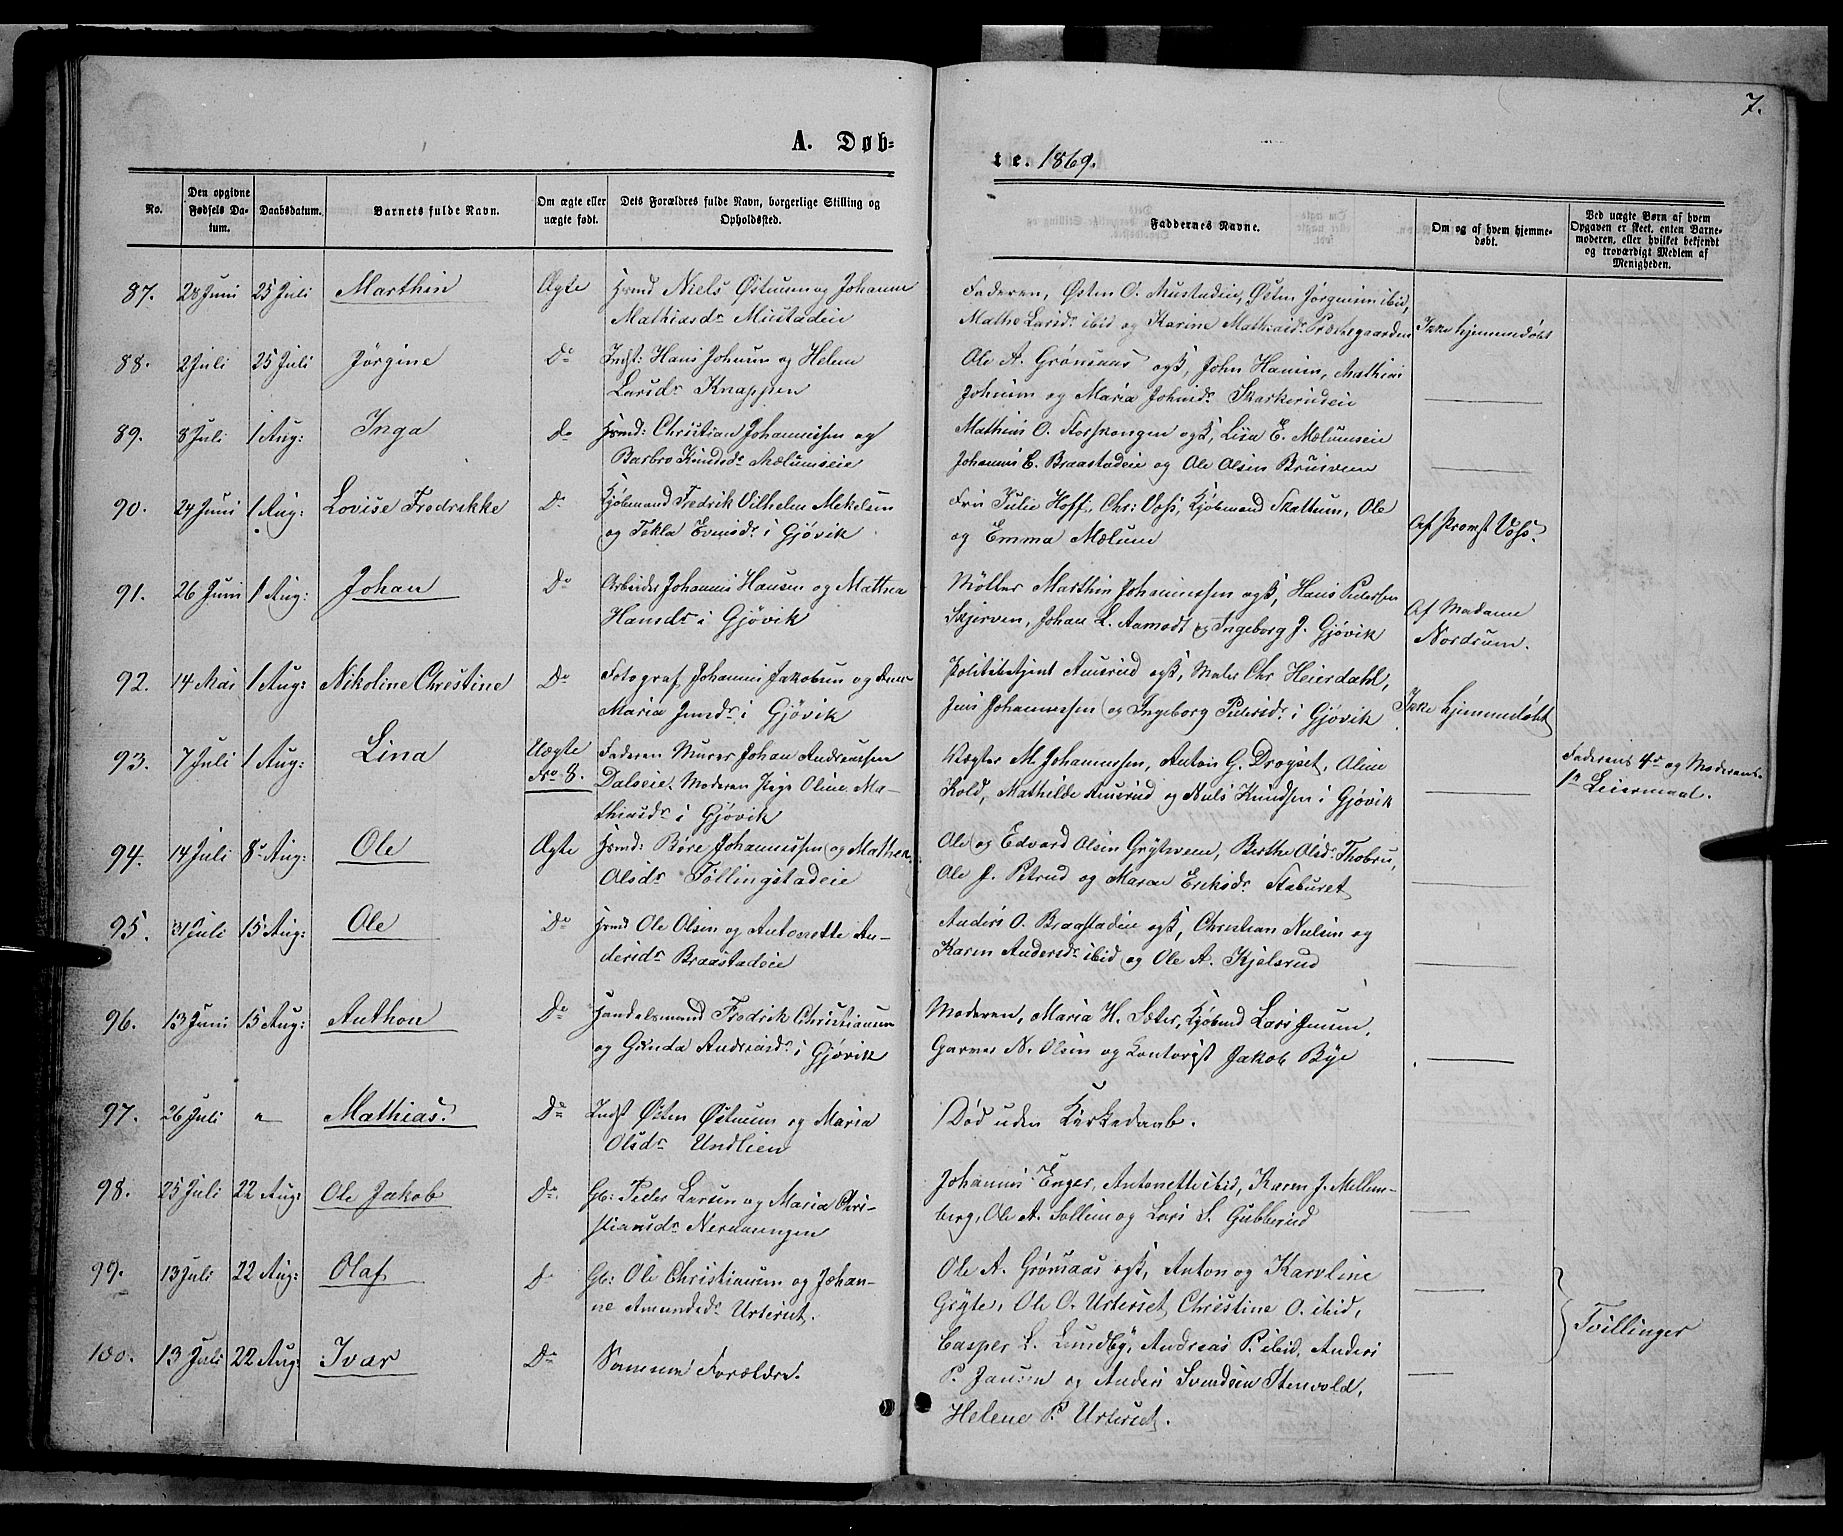 7.
A. Døb-
te. 1869.
No.
Den opgivne Fødsels Da-tum.
Daabsdatum.
Barnets fulde Navn.
Om ægte eller uægte født.
Dets Forældres fulde Navn, borgerlige Stilling og Opholdssted.
Faddernes Navne.
Om og af hvem hjemme-døbt.
Ved uægte Børn af hvem Opgaven er skeet, enten Barne-moderen, eller hvilket bekjendt og troværdigt Medlem af Menigheden.
87. 28 Juni 25 Juli Marthin Ægte Hsmd Niels Østensen og Johanne
Mathiasdr Mustadeie
Faderen, Østen O. Mustadeie, Østen Jørgensen ibid,
Mathe Larsdr ibid og Karine Mathiasdr Præstegaarden Ikke hjemmedøbt
88. 2 Juli 25 Juli Jørgine Do Indst: Hans Johnsen og Helene
Larsdr Knappen
Ole A. Grønsaas ogk, John Hansen, Mathias
Johnsen og Maria Johnsdr Skarkerudeie
89. 8 Juli 1 Aug: Inga do Hsmd: Christian Johannessen og
Barbro Knudsdr Mælumseie
Mathias O. Storskongen ogk, Lisa E. Mælumseie
Johannes E. Braastadeie og Ole Olsen Bruisveen
90. 24 Juni 1 Aug: Lovise Fredrikke Do Kjøbmand Fredrik Vilhelm Mekelsen
og Tekla Evensdr i Gjøvik
Frü Julie Hoff, Chr: Voss, Kjøbmand Skattum, Ole
og Emma Mælum
Af Provst Voss.
91. 26 Juni 1 Aug: Johan Do Arbeider Johannes Hansen og Mathea
Hansdr i Gjøvik
Møller Marthin Johannessen ogk, Hans Pedersen
Skjerven, Johan L. Aamodt og Ingeborg J. Gjøvik
Af Madame
Nordrum.
92. 14 Mai 1 Aug: Nikoline Chrestine Do Fotograf Johannes Jakobsen og Anne
Maria Jensdr i Gjøvik
Politibetjent Ausrud ogk, Maler Chr Heierdahl,
Jens Johannessen og Ingeborg Pedersdr i Gjøvik Ikke hjemmedøbt
93. 7 Juli 1 Aug: Lina Uægte
No 8.
Faderen Murer Johan Andreassen
Dalseie. Moderen Pige Oline Ma-
thiasdr i Gjøvik
Vægter M. Johannessen, Anton G. Drogset, Oline
Kold, Mathilde Ausrud og Nils Knudsen i Gjøvik
Faderens 4de og Moderens
1ste Leiermaal.
94. 14 Juli 8 Aug: Ole Ægte Hsmd: Børe Johannessen og Mathea
Olsdr Føllingstadeie
Ole og Edvard Olsen Grytveene, Berthe Olsdr Thobru,
Ole J. Petrud og Maren Eriksdr Staburet
95. 31 Juli 15 Aug: Ole Do Hsmd Ole Olsen og Antonette An-
dersdr Braastadeie
Anders O. Braastadeie ogk, Christian Nielsen og
Karen Andersdr ibid og Ole A. Kjelsrud
96. 13 Juni 15 Aug: Anthon Do Handelsmand Fredrik Christiansen
og Gunda Andreasdr i Gjøvik
Moderen, Maria H. Sæter, Kjøbmd Lars Jensen,
Garver N. Olsen og Kontorist Jakob Bye
97. 26 Juli " Mathias. Do Indst Østen Østensen og Maria
Olsdr Undlien
Død uden Kirkedaab.
98. 25 Juli 22 Aug: Ole Jakob Do Gb: Peder Larsen og Maria Chri-
stiansdr Nerdrumgen
Johannes Enger, Antonette ibid, Karen J. Mellem-
berg, Ole A. Sollien og Lars L. Gubberud
99. 13 Juli 22 Aug: Olaf Do Gb: Ole Christiansen og Johan-
ne Amundsdr Urterset.
Ole A. Grønsaas ogk, Anton og Karoline
Gryte, Ole O. Urterset, Christine O. ibid,
100. 13 Juli 22 Aug: Ivar Do Samme Forældre.
Casper L. Lundby, Andreas P. ibid, Anders
P. Jansen og Anders Svendsen Stenvold,
Helene P. Urterset.
Tvillinger